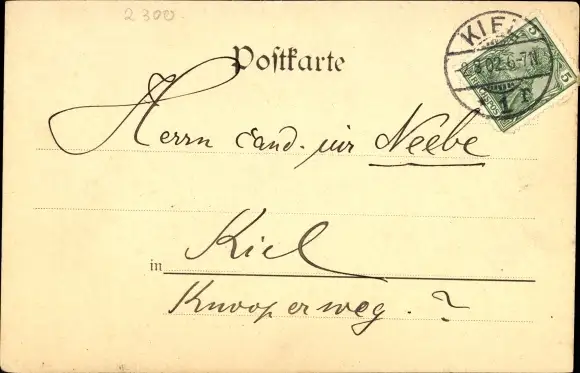 2300
Postkarte
KIEL
8.3.02.6-7N
1 r
5
5
Herrn Cand. iur Neebe
in Kiel
Knooperweg. ?